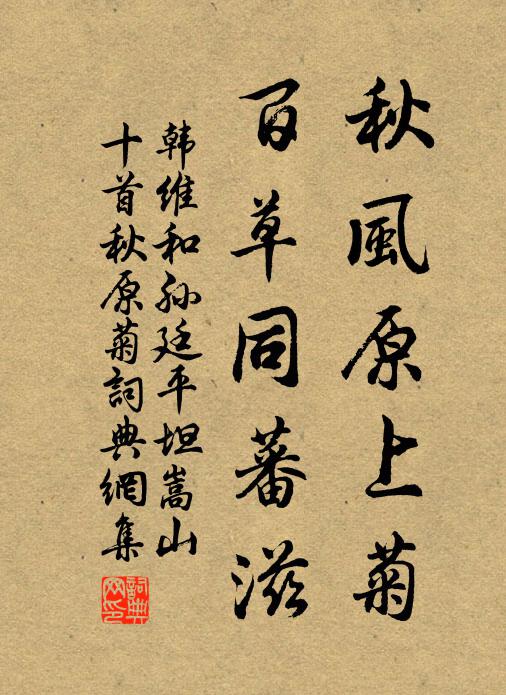 秋風原上菊
百草同蕃滋
韩維和孙廷平坦嵩山
十首秋原菊詞典網集
詞典
网印